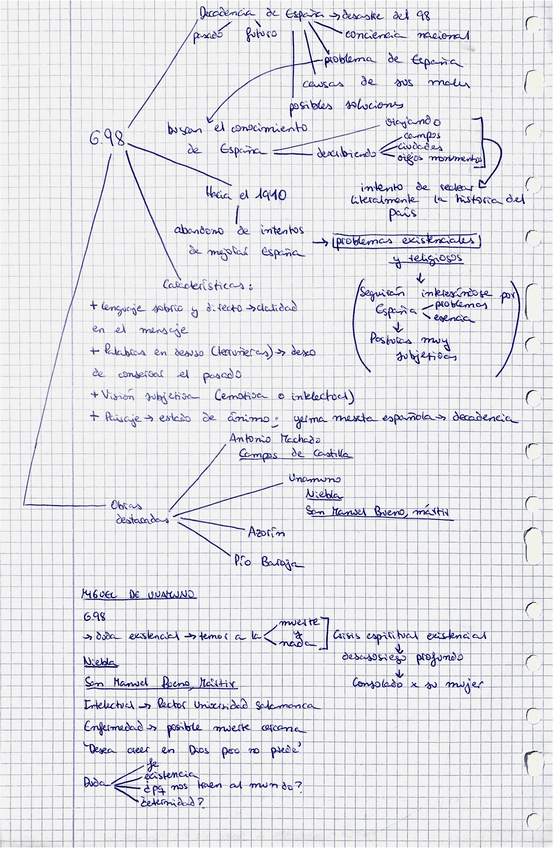 Decadencia de España → desastre del 98
pasado futuro
conciencia nacional
problema de España
causas de sus males
posibles soluciones
G.98
buscan el conocimiento
de España
viajando
describiendo
campos
ciudades
viejos monumentos
intento de recrear
literalmente la historia del
país
Hacia el 1910
abandono de intentos
de mejorar España
→ problemas existenciales
y religiosos
(Seguirán interesándose por
España
problemas
esencia
Posturas muy
subjetivas)
Características:
+ Lenguaje sobrio y directo → claridad
en el mensaje
+ Palabras en desuso (terruñeras) → deseo
de conservar el pasado
+ Visión subjetiva (emotiva o intelectual)
+ Paisaje → estado de ánimo: yerma meseta española → decadencia
Obras
destacadas
Antonio Machado
Campos de Castilla
Unamuno
Niebla
San Manuel Bueno, mártir
Azorín
Pío Baroja
MIGUEL DE UNAMUNO
G98
→ duda existencial → temor a la
muerte
y
nada
Crisis espiritual existencial
desasosiego profundo
Consolado x su mujer
Niebla
San Manuel Bueno, Mártir
Intelectual → Rector Universidad Salamanca
Enfermedad → posible muerte cercana
"Desea creer en Dios pero no puede"
Duda
fe
existencia
¿pq nos traen al mundo?
eternidad?